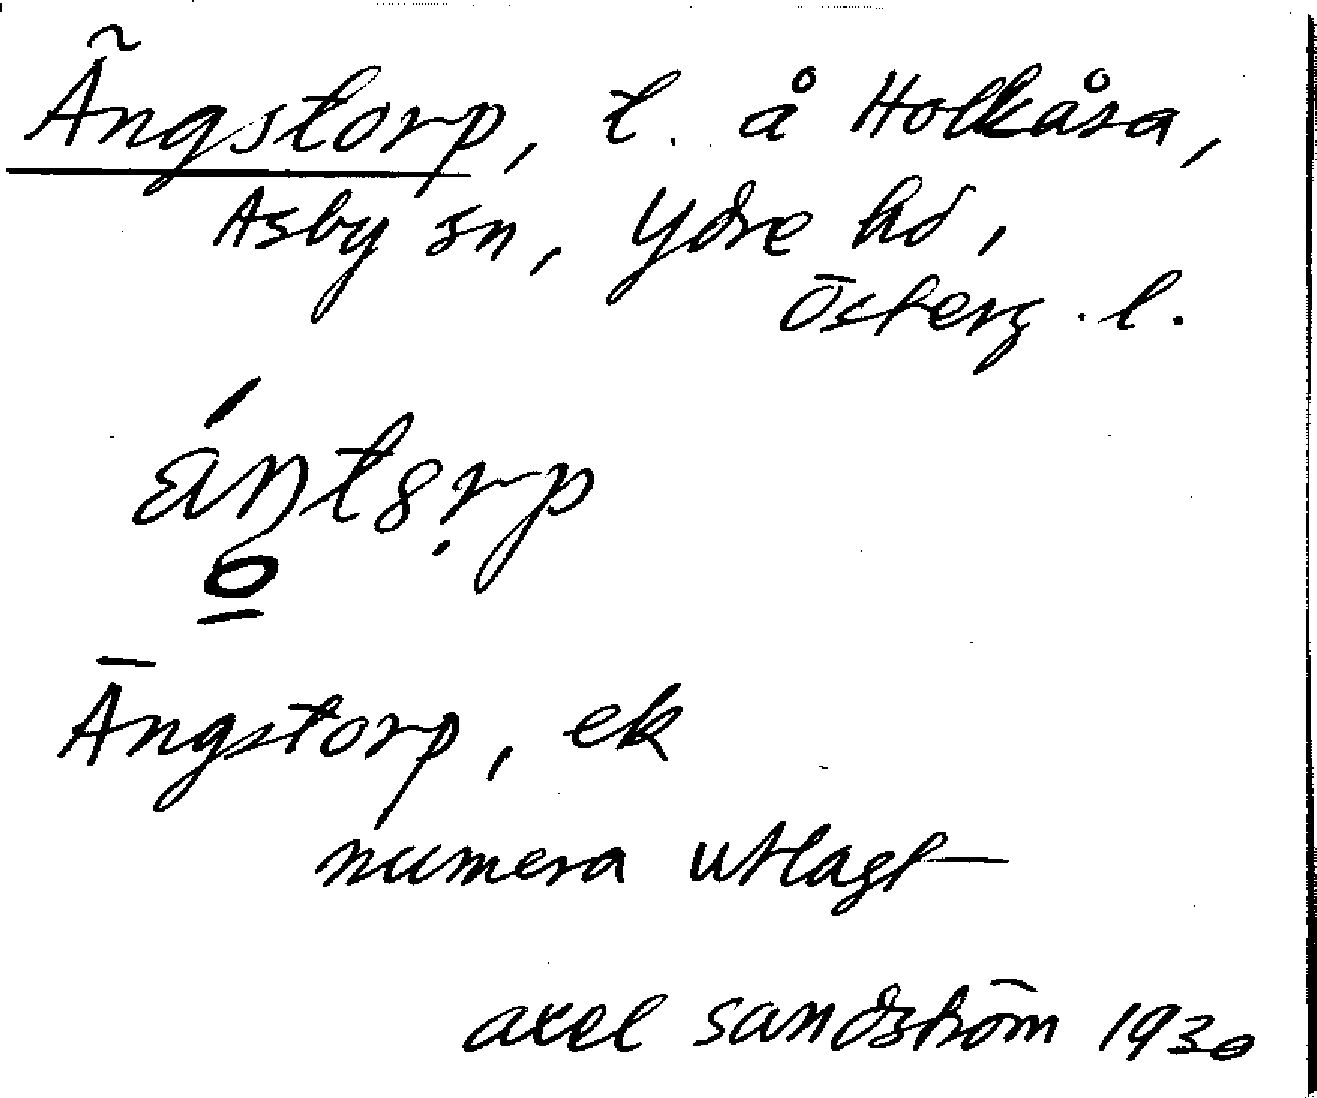 Ängstorp, t. å Holkåsa,
Asby sn, Ydre hd,
Österg. l.
Ängstorp, ek
numera utlagt
Axel Sandström 1930